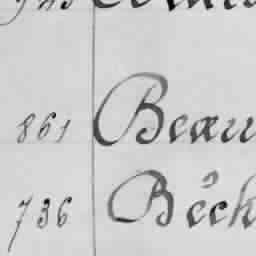 861 Beau
736 Bêch